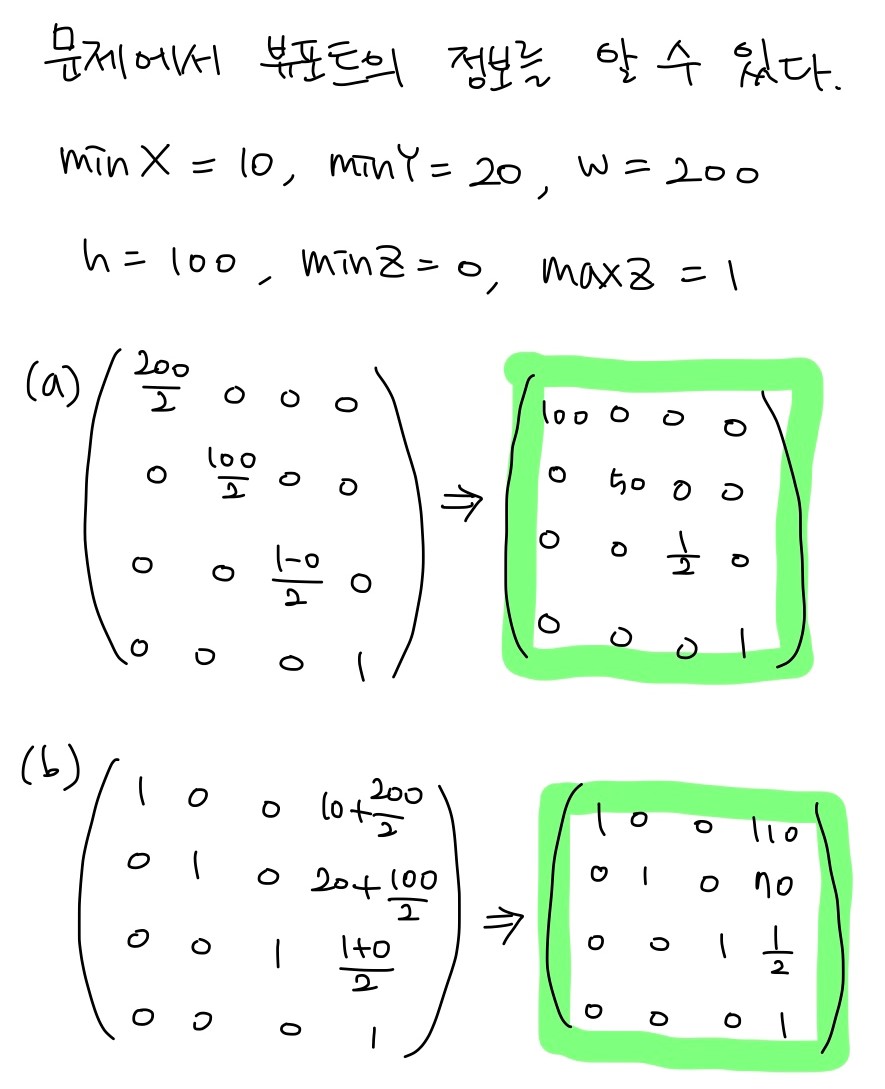 문제에서 뷰포트의 정보를 알 수 있다.
minX = 10, minY = 20, w = 200
h = 100, minZ = 0, maxZ = 1
(a)
200/2 0 0 0
0 100/2 0 0
0 0 1-0/2 0
0 0 0 1
⇒
100 0 0 0
0 50 0 0
0 0 1/2 0
0 0 0 1
(b)
1 0 0 10+200/2
0 1 0 20+100/2
0 0 1 1+0/2
0 0 0 1
⇒
1 0 0 110
0 1 0 70
0 0 1 1/2
0 0 0 1